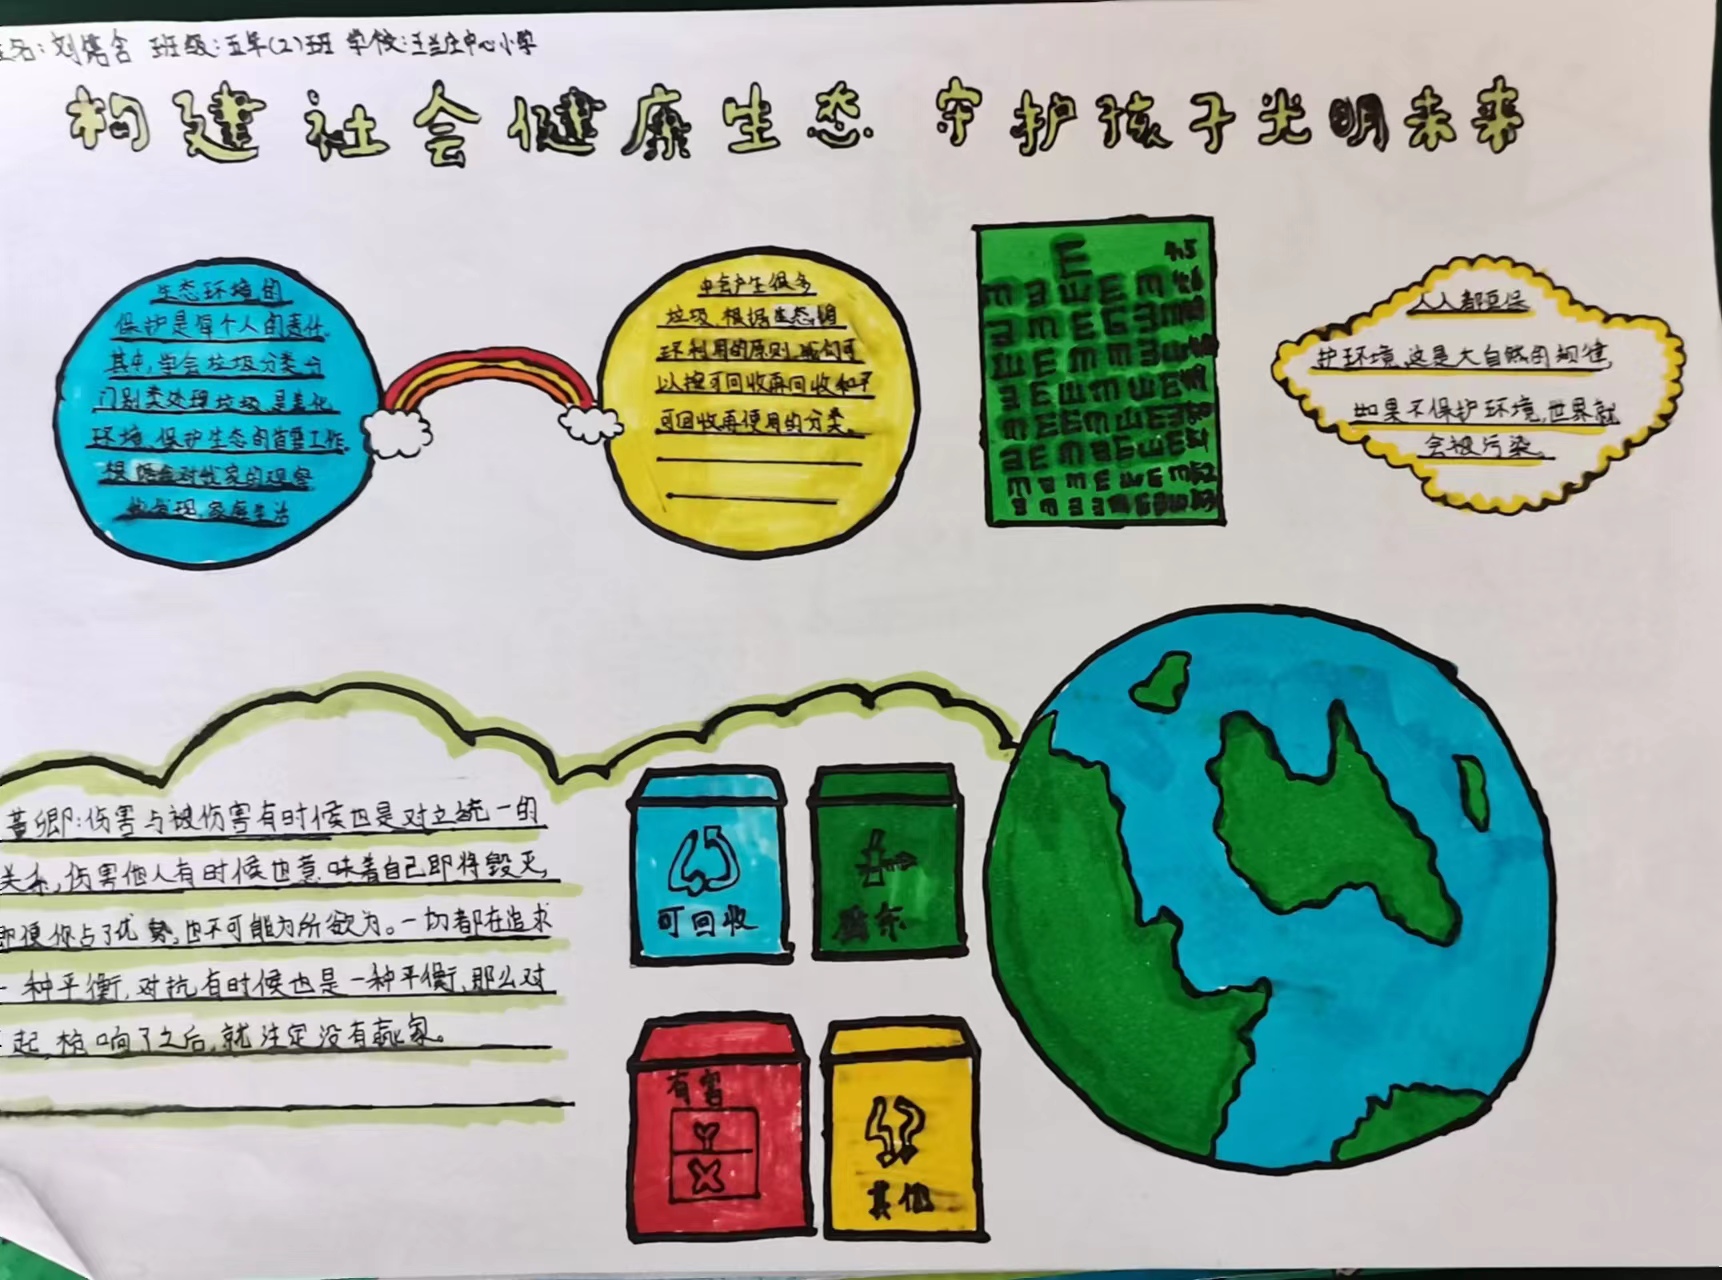 姓名:刘熺含 班级:五年(2)班 学校:王兰庄中心小学
构建社会健康生态 守护孩子光明未来
生态环境的
保护是每个人的责任.
其中,学会垃圾分类分
门别类处理垃圾,是美化
环境、保护生态的首要工作.
根据对我家的观察
发现,家庭生活
中会产生很多
垃圾,根据生态循
环利用的原则,我们可
以按可回收再回收和不
可回收再使用的分类。
4.5
人人都要保
护环境,这是大自然的规律,
如果不保护环境,世界就
会被污染。
董卿:伤害与被伤害有时候也是对立统一的
关系,伤害他人有时候也意味着自己即将毁灭,
即便你占了优势,也不可能为所欲为。一切都在追求
一种平衡,对抗有时候也是一种平衡,那么对
起,枪响了之后,就注定没有赢家。
可回收
有害
其他